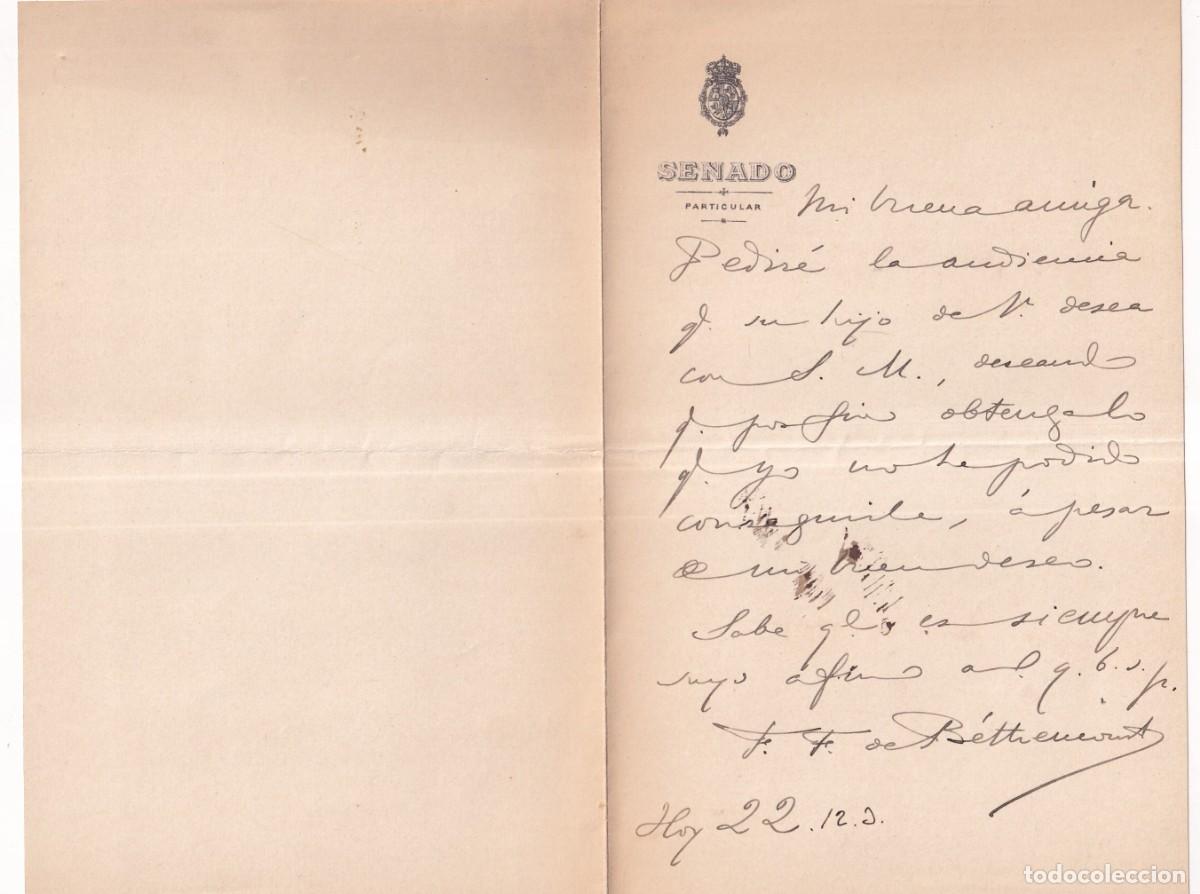 SENADO
PARTICULAR
Mi buena amiga.
Pediré la audiencia
q. su hijo de V. desea
con S. M., deseando
q. por fin obtenga lo
q. yo no he podido
conseguirle, á pesar
de mi buen deseo.
Sabe q. es siempre
suyo afmo q. b. s. p.
F. F. de Béthencourt
Hoy 22.12.
todocoleccion